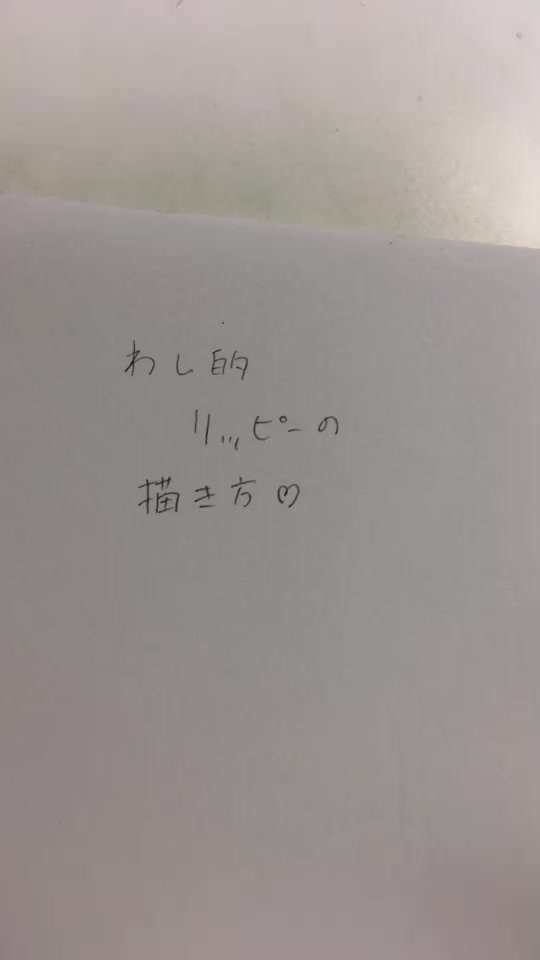 わし的
リッピーの
描き方♡